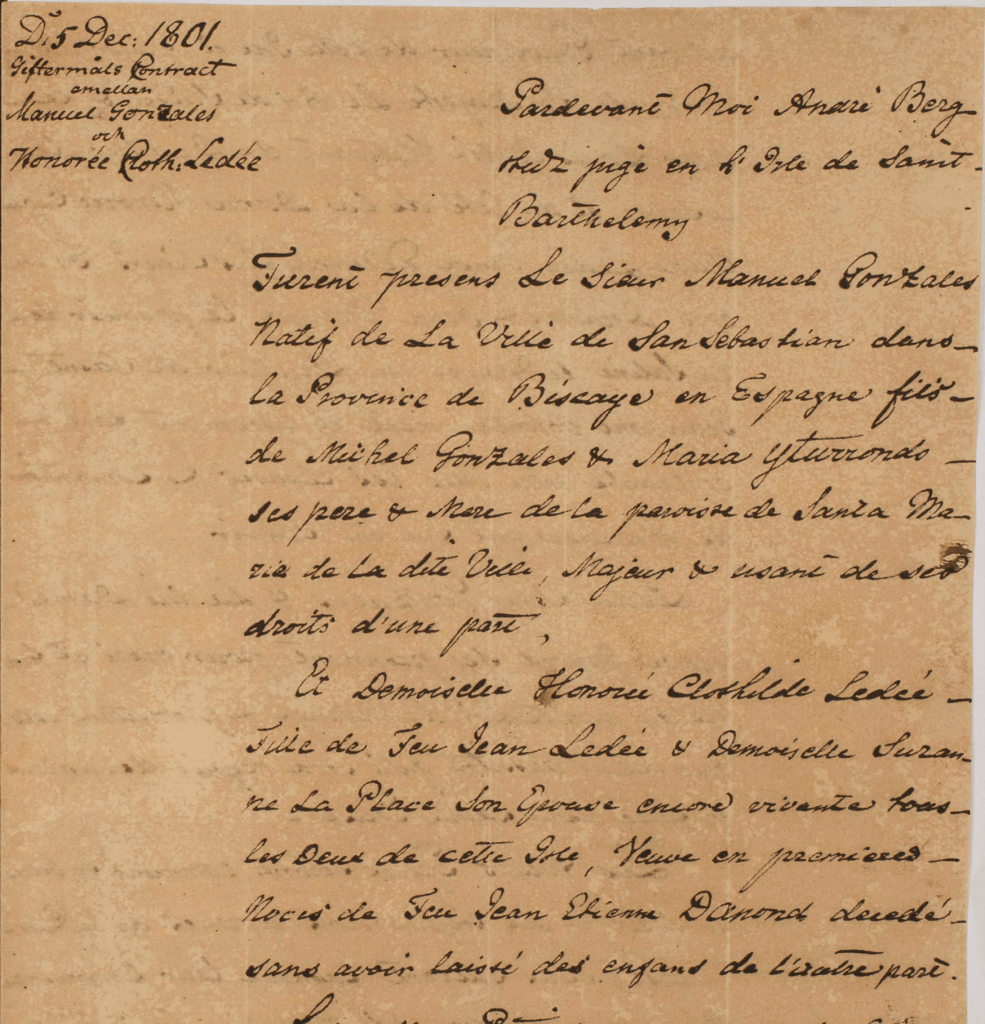 D. 5 Dec: 1801.
Giftermåls Contract
emellan
Manuel Gonzales
och
Honorée Cloth: Ledée
Pardevant Moi André Berg
stedt juge en L'Isle de Saint-
Barthelemy
Furent presens Le Sieur Manuel Gonzales
Natif de La Ville de San Sebastian dans
la Province de Biscaye en Espagne fils
de Michel Gonzales & Maria Yturrondo
ses pere & Mere de la paroisse de Santa Ma-
ria de La dite Ville, Majeur & usant de ses
droits d'une part,
Et Demoiselle Honorée Clothilde Ledée
Fille de Feu Jean Ledée & Demoiselle Suzan-
ne La Place Son Epouse encore vivante tous
les Deux de cette Isle, Veuve en premieres
Noces de Feu Jean Etienne Danond decedé
sans avoir laissé des enfans de l'autre part.